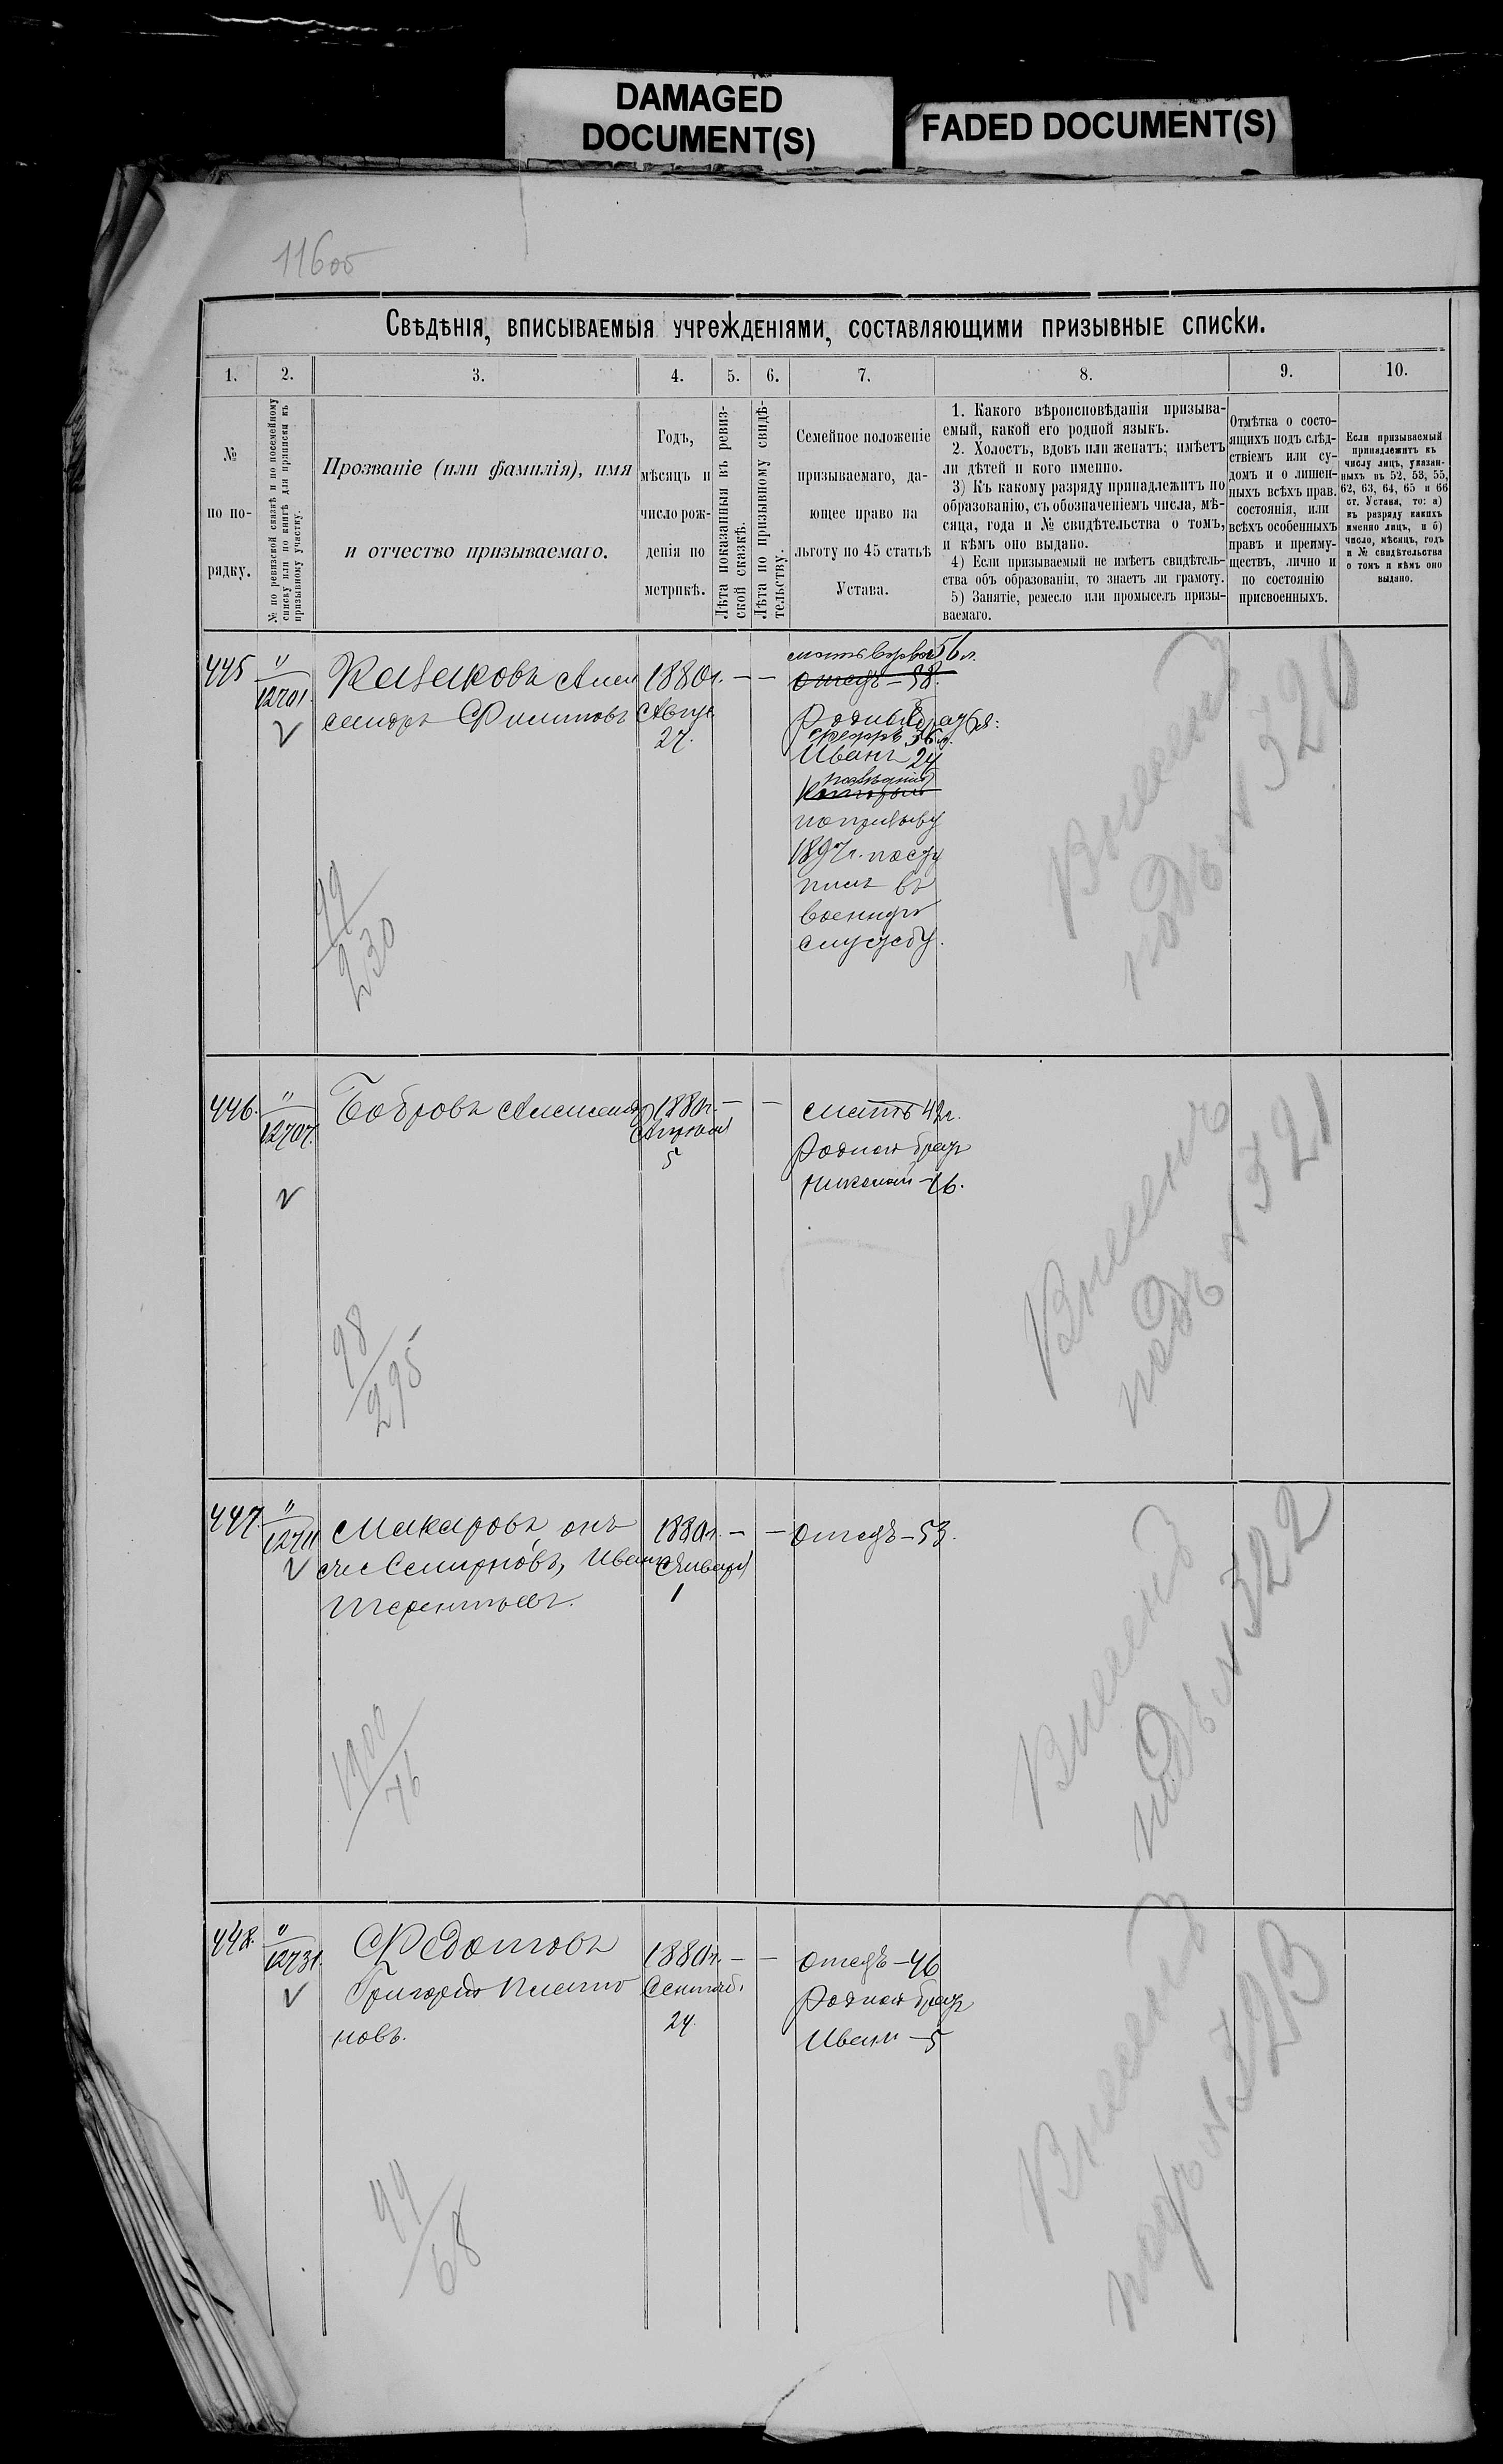 DAMAGED
DOCUMENT(S)
FADED DOCUMENT(S)
116об
Свѣдѣнія, вписываемыя учрежденіями, составляющими призывные списки.
1. 2. 3. 4. 5. 6. 7. 8. 9. 10.
№
по по-
рядку.
№ по ревизской сказкѣ и по посемейному
списку или по книгѣ для приписки къ
призывному участку.
Прозваніе (или фамилія), имя
и отчество призываемаго.
Годъ,
мѣсяцъ и
число рож-
денія по
метрикѣ.
Лѣта показанныя въ ревиз-
ской сказкѣ.
Лѣта по призывному свидѣ-
тельству.
Семейное положеніе
призываемаго, да-
ющее право на
льготу по 45 статьѣ
Устава.
1. Какого вѣроисповѣданія призыва-
емый, какой его родной языкъ.
2. Холостъ, вдовъ или женатъ; имѣетъ
ли дѣтей и кого именно.
3) Къ какому разряду принадлежитъ по
образованію, съ обозначеніемъ числа, мѣ-
сяца, года и № свидѣтельства о томъ,
и кѣмъ оно выдано.
4) Если призываемый не имѣетъ свидѣтель-
ства объ образованіи, то знаетъ ли грамоту.
5) Занятіе, ремесло или промыселъ призы-
ваемаго.
Отмѣтка о состо-
ящихъ подъ слѣд-
ствіемъ или су-
домъ и о лишен-
ныхъ всѣхъ прав.
состоянія, или
всѣхъ особенныхъ
правъ и преиму-
ществъ, лично и
по состоянію
присвоенныхъ.
Если призываемый
принадлежитъ къ
числу лицъ, указан-
ныхъ въ 52, 53, 55,
62, 63, 64, 65 и 66
ст. Устава, то: а)
къ разряду какихъ
именно лицъ, и б)
число, мѣсяцъ, годъ
и № свидѣтельства
о томъ и кѣмъ оно
выдано.
445
"
12701.
Казаковъ Алек
сандръ Филиповъ
1880г.
Авгус.
27.
— —
мать Варвара 56 л.
отецъ – 58.
Родные братья:
36 л.
Иванъ 24
который
по призыву
1897г. посту
пилъ въ
военную
службу.
Внесенъ
подъ № 320
99
230
446.
"
12707.
Бобровъ Александръ
1880г.
Апрѣля
5
— —
мать 42г.
родной братъ
Николай – 16.
Внесенъ
подъ № 321
98
295
447
"
12711
Макаровъ, онъ
же Смирновъ, Иванъ
Терентьевъ.
1880г.
Января
1
— —
отецъ – 53.
Внесенъ
подъ № 322
1900
76
448.
"
12731.
Федотовъ
Григорій Плато
новъ.
1880г.
Сентяб.
24.
— —
отецъ – 46
родной братъ
Иванъ – 5
Внесенъ
подъ № 323
99
68